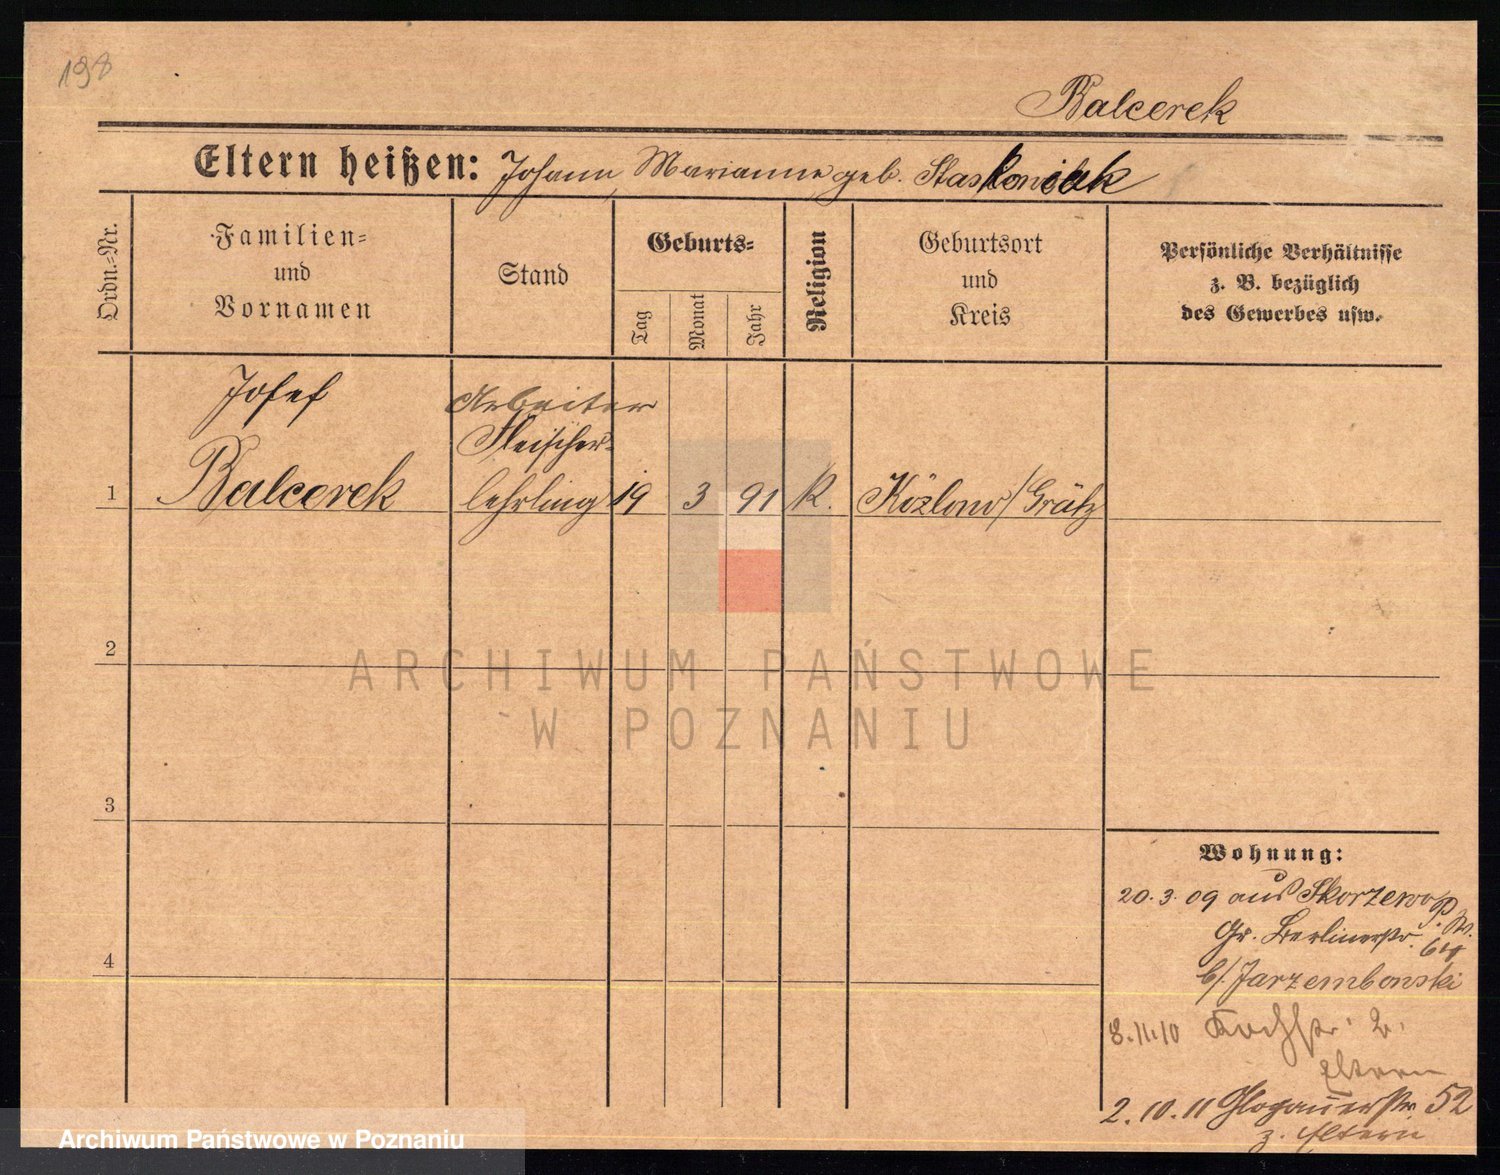 198
Balcerek
Eltern heißen: Johann, Marianne geb. Staskowiak
Ordn.=Nr.
Familien=
und
Vornamen
Stand
Geburts=
Tag
Monat
Jahr
Religion
Geburtsort
und
Kreis
Persönliche Verhältnisse
z. B. bezüglich
des Gewerbes usw.
Josef
Arbeiter
Fleischer-
1 Balcerek lehrling 19 3 91 K. Kózlowo/Grätz
2
ARCHIWUM PAŃSTWOWE
W POZNANIU
3
Wohnung:
20.3.09 aus Skorzewo P. W.
Gr. Berlinerstr. 64
4
b/ Jarzembowski
8.11.10
Eltern
2.10.11 Glogauerstr 52
z. Eltern
Archiwum Państwowe w Poznaniu